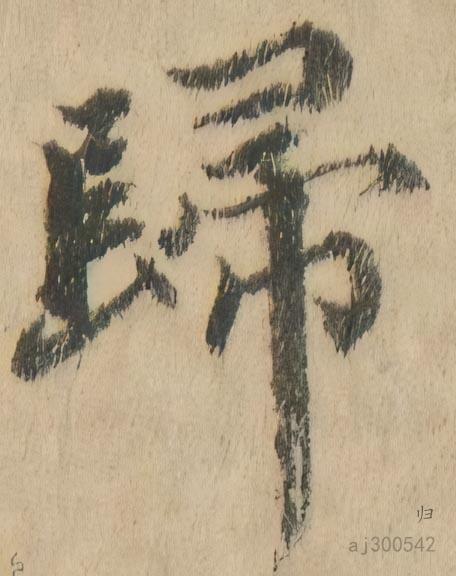 歸
归
aj300542